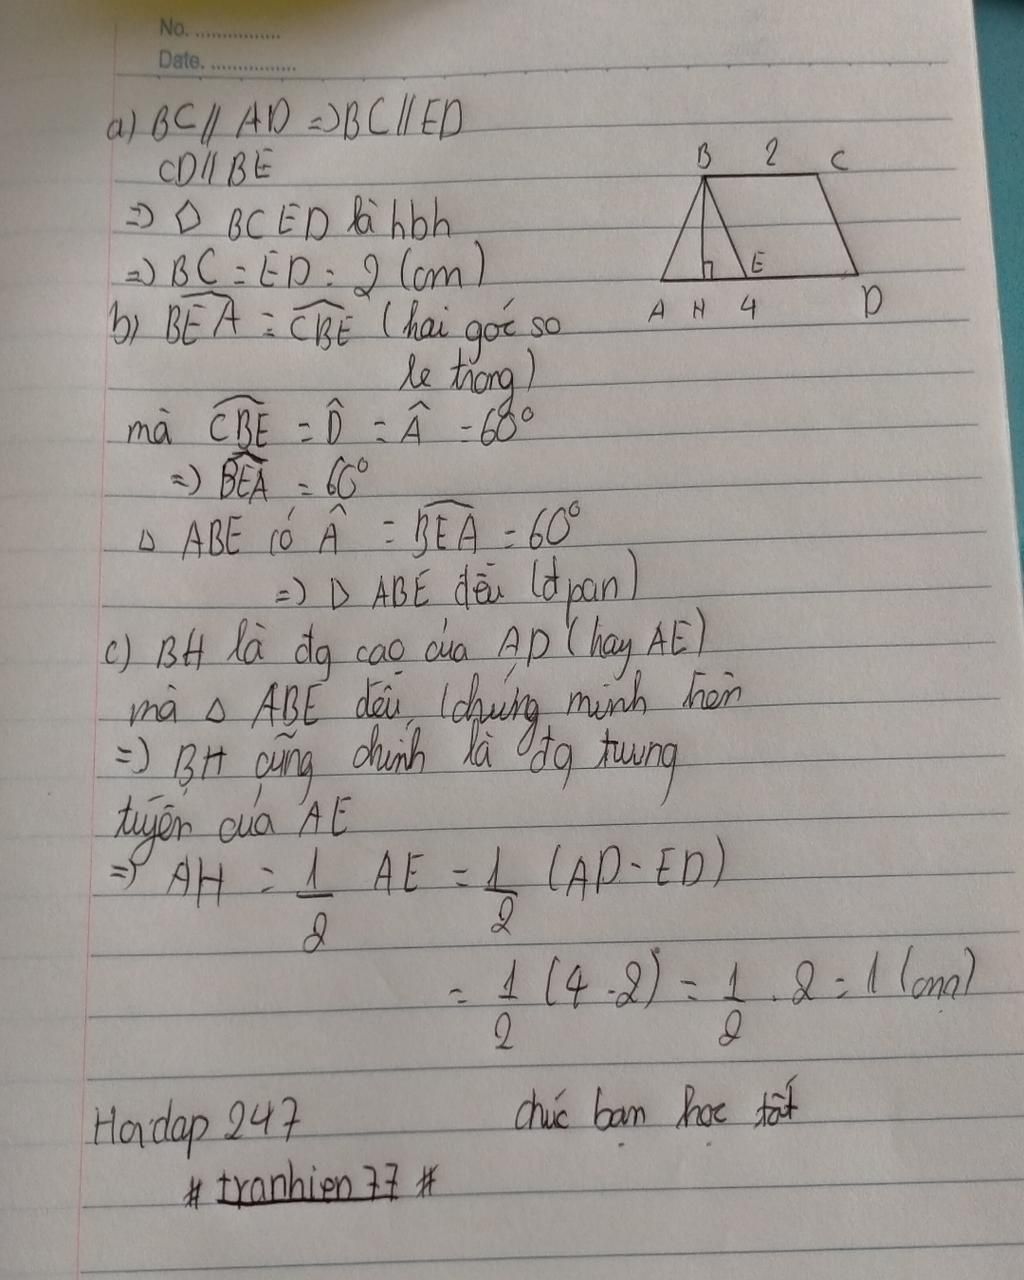 No. ................
Date. ................
a) BC // AD => BC // ED
CD // BE
=> ▱ BCED là hbh
=> BC = ED = 2 (cm)
B 2 C
E
A H 4 D
b) BEA = CBE (hai góc so
le trong)
mà CBE = D̂ = Â = 60°
=> BEA = 60°
Δ ABE có Â = BEA = 60°
=> Δ ABE đều (đpcm)
c) BH là đg cao của AD (hay AE)
mà Δ ABE đều, (chứng minh trên
=> BH cũng chính là đg trung
tuyến của AE
=> AH = 1/2 AE = 1/2 (AD - ED)
= 1/2 (4 - 2) = 1/2 . 2 = 1 (cm)
Hoidap 247 chúc bạn học tốt
# tranhien77 #